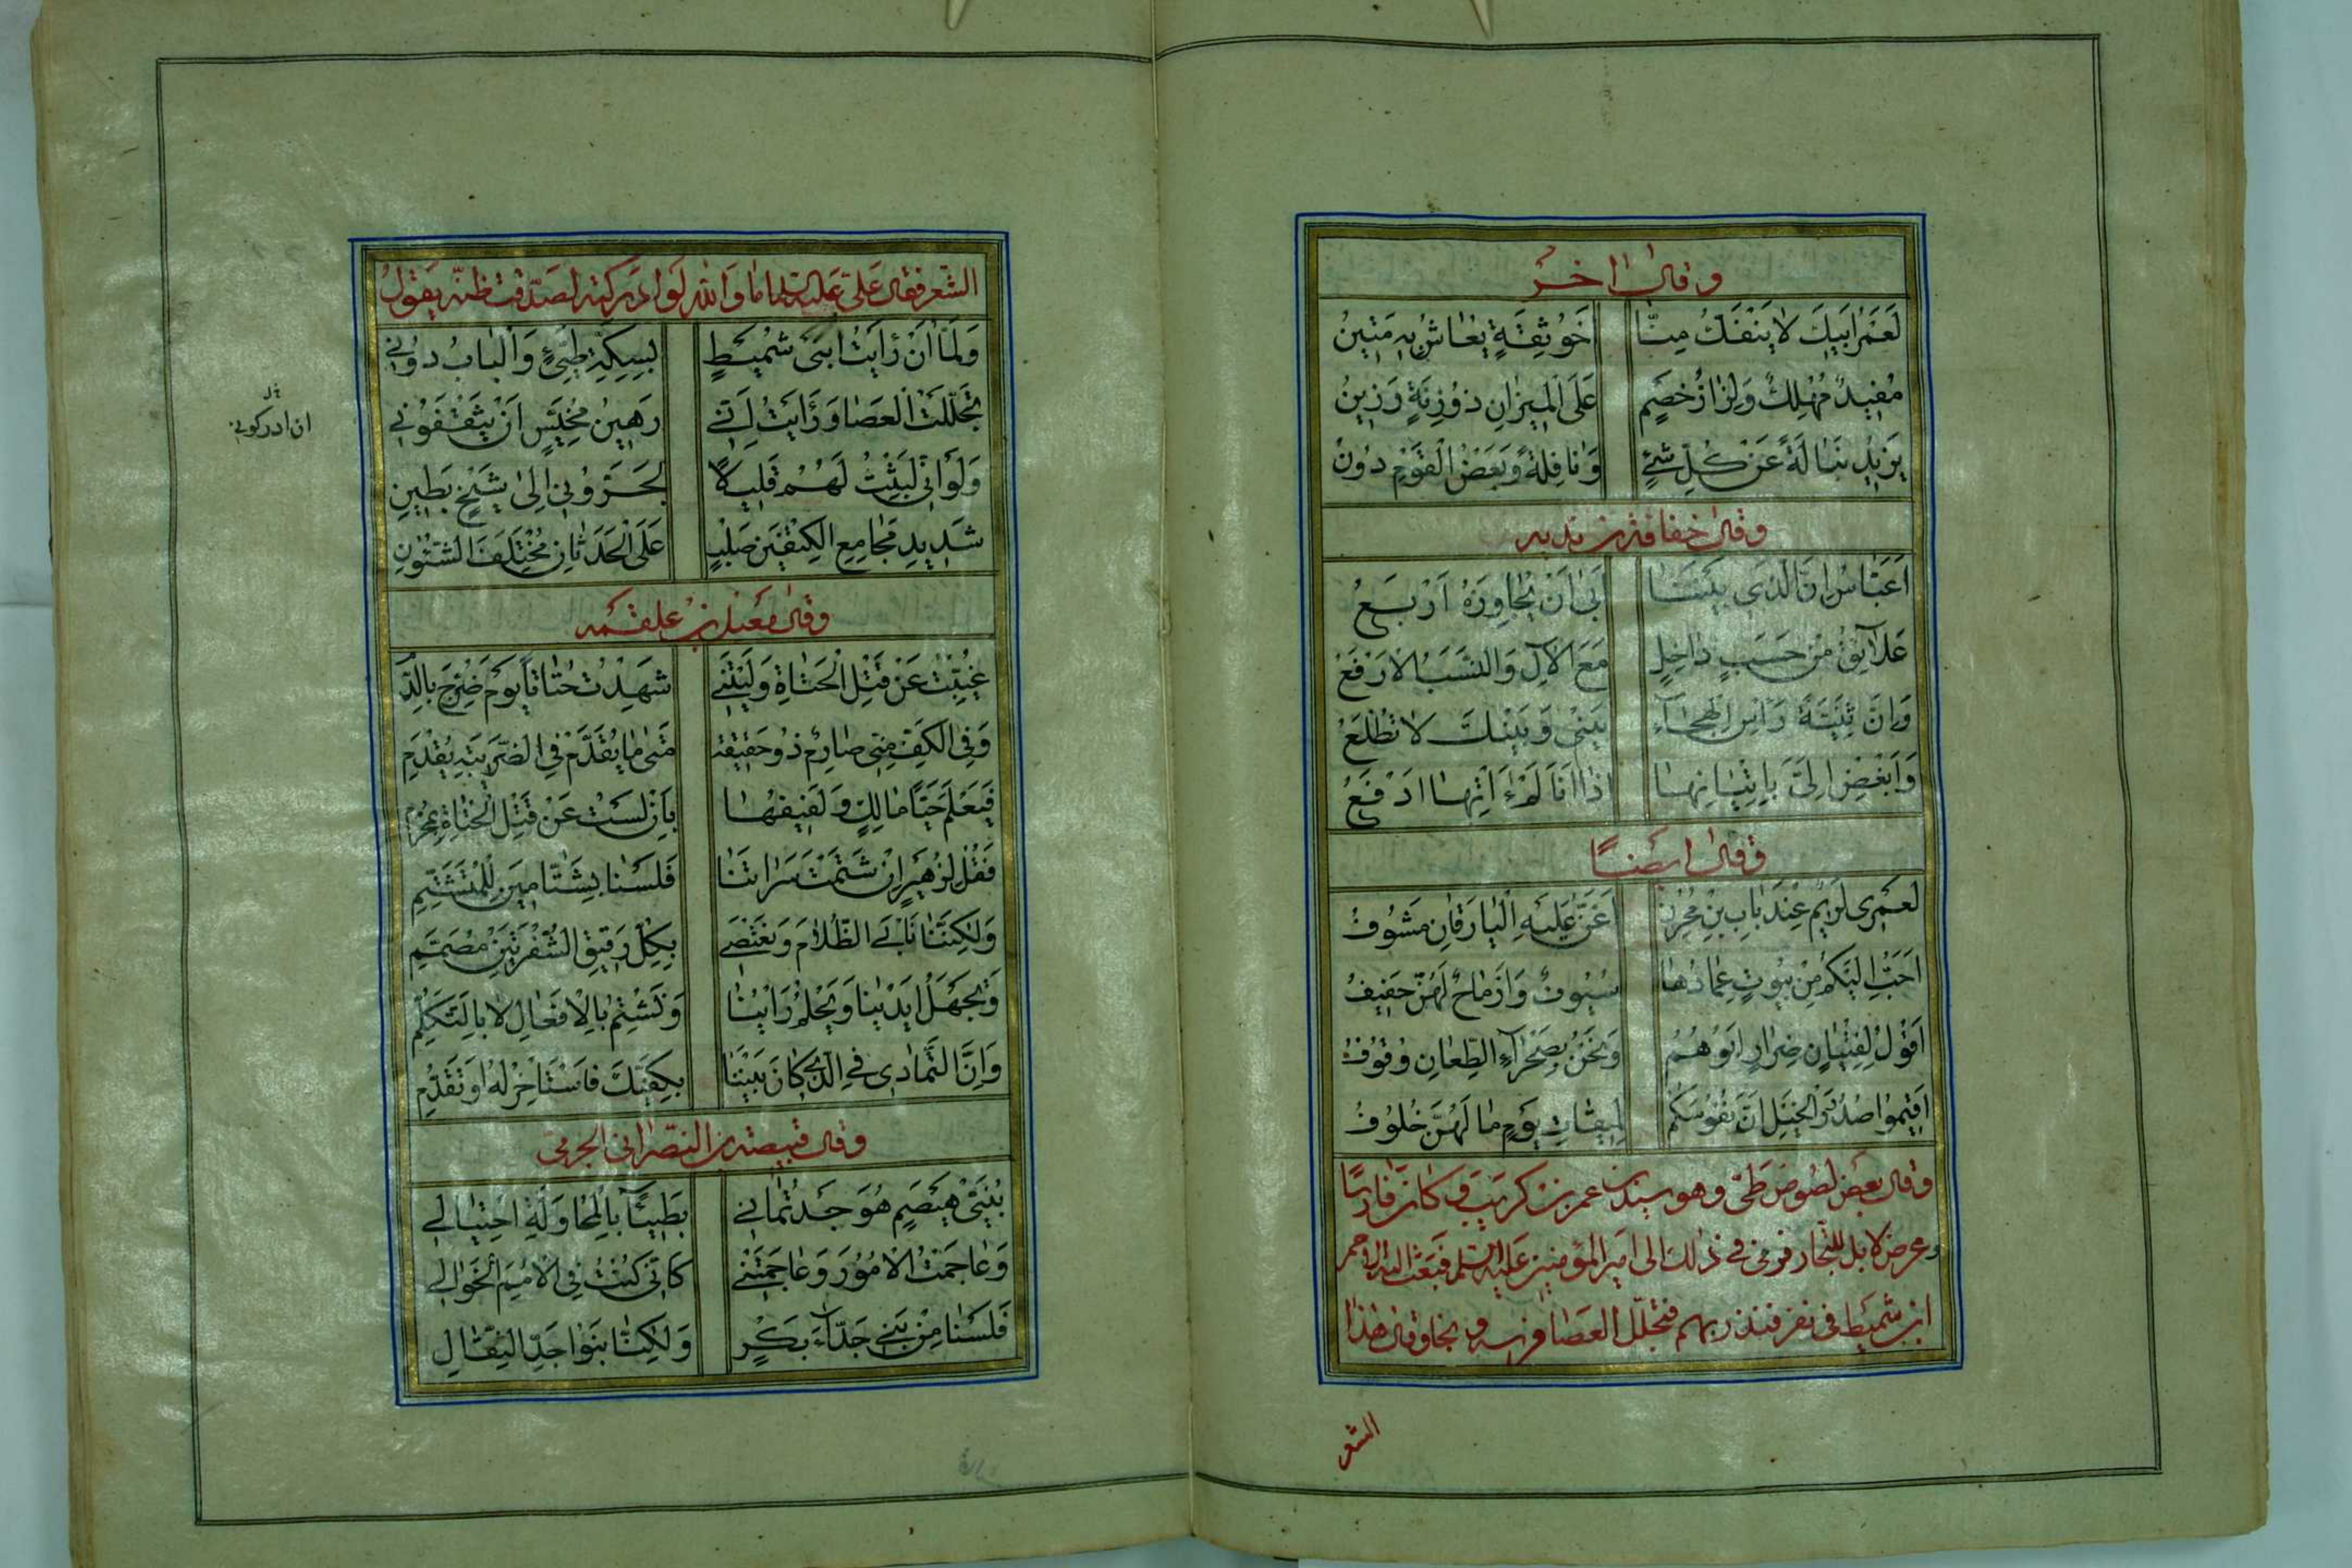 وقال اخر
لَعَمْرُ اَبيكَ لا يَنْفَكُّ مِنّا اَخُو ثِقَةٍ يُعاشُ بِهِ مَتينُ
مُفيدٌ مُهْلِكٌ وَلِزازُ خَصْمٍ عَلَى الْميزانِ ذُو زِنَةٍ رَزينُ
يَزيدُ نَبالَةً عَنْ كُلِّ شَيْءٍ وَنافِلَةً وَبَعْضُ الْقَوْمِ دُونُ
وقال خفاف بن ندبه
اَعَبّاسُ اِنَّ الَّذي بَيْنَنا اَبى اَنْ يُجاوِزَهُ اَرْبَعُ
عَلائِقُ مِنْ حَسَبٍ داخِلٍ مَعَ الْاِلِّ وَالنَّسَبُ الْاَرْفَعُ
وَاِنَّ ثَنِيَّةَ رَاْسِ الْهِجاءِ بَيْني وَبَيْنَكَ لا تُطْلَعُ
وَاَبْغِضْ اِلَيَّ بِاِتْيانِها اِذا اَنَا لَمْ آتِها اَدْفَعُ
وقال ايضًا
لَعَمْري لَريمٌ عِنْدَ بابِ بْنِ مُحْرِزٍ اَغَنُّ عَلَيْهِ الْيارَقانِ مَشُوفُ
اَحَبُّ اِلَيْكُمْ مِنْ بُيُوتٍ عِمادُها سُيُوفٌ وَاَرْماحٌ لَهُنَّ حَفيفُ
اَقُولُ لِفِتْيانٍ ضِرارٌ اَبُوهُمُ وَنَحْنُ بِصَحْراءِ الطِّعانِ وُقُوفُ
اَقيمُوا صُدُورَ الْخَيْلِ اِنَّ نُفُوسَكُمْ لِميقاتِ يَوْمٍ ما لَهُنَّ خُلُوفُ
وقال بعض لصوص طيّ وهو شبيب بن عمرو بن كريب وكان فارسًا
وعرض لابل للتجار فرمى في ذلك الى امير المؤمنين عليه السلم فبعث اليه احمر
ابن شميط في نفر فنذر بهم فتجلل العصا فرسه ونجا وقال هذا
الشعر
الشعر فقال على عليه السلم اما والله لو ادركته لصدقت ظنه يقول
وَلَمّا اَنْ رَاَيْتُ ابْنَيْ شُمَيْطٍ بِسِكَّةِ طَيِّءٍ وَالْبابُ دُوني
تَجَلَّلْتُ الْعَصا وَرَاَيْتُ اَنّي رَهينُ مُخَيَّسٍ اَنْ يَثْقَفُوني
قال
ان ادركوني
وَلَوْ اَنّي لَبِثْتُ لَهُمْ قَليلًا لَجَرُّوني اِلى شَيْخٍ بَطينِ
شَديدِ مَجامِعِ الْكَتِفَيْنِ صَلْبٍ عَلَى الْحَدَثانِ مُخْتَلِفَ الشُّئُونِ
وقال معبد بن علقمه
غُيِّبْتُ عَنْ قَتْلِ الْحُتاتِ وَلَيْتَني شَهِدْتُ حُتاتًا يَوْمَ ضُرِّجَ بِالدَّ
وَفِي الْكَفِّ مِنّي صارِمٌ ذُو حَقيقَةٍ مَتى ما يُقَدَّمْ فِي الضَّريبَةِ يُقْدِمِ
فَيَعْلَمَ حَيّا مالِكٍ وَلَفيفُها بِاَنْ لَسْتُ عَنْ قَتْلِ الْحُتاتِ بِمُحْرِمِ
فَقُلْ لِزُهَيْرٍ اِنْ شَتَمْتَ سَراتَنا فَلَسْنا بِشَتّامينَ لِلْمُتَشَتِّمِ
وَلكِنَّنا نَاْبَى الظَّلامَ وَنَعْتَصي بِكُلِّ رَقيقِ الشَّفْرَتَيْنِ مُصَمِّمِ
وَتَجْهَلُ اَيْدينا وَيَحْلُمُ رَاْيُنا وَنَشْتِمُ بِالْاَفْعالِ لا بِالتَّكَلُّمِ
وَاِنَّ التَّمادي فِي الَّذي كانَ بَيْنَنا بِكَفَّيْكَ فَاسْتَاْخِرْ لَهُ اَوْ تَقَدَّمِ
وقال قبيصة بن النصراني الجرمي
بُنَيَّ هَيْصَمٍ هُوَ جَدُّ نَماني بَطيئًا بِالْمُحاوَلَةِ احْتِيالي
وَعاجَمْتُ الْاُمُورَ وَعاجَمَتْني كَاَنّي كُنْتُ فِي الْاُمَمِ الْخَوالي
فَلَسْنا مِنْ بَني جَدّاءَ بَكْرٍ وَلكِنّا بَنُوا جَدِّ النِّقالِ